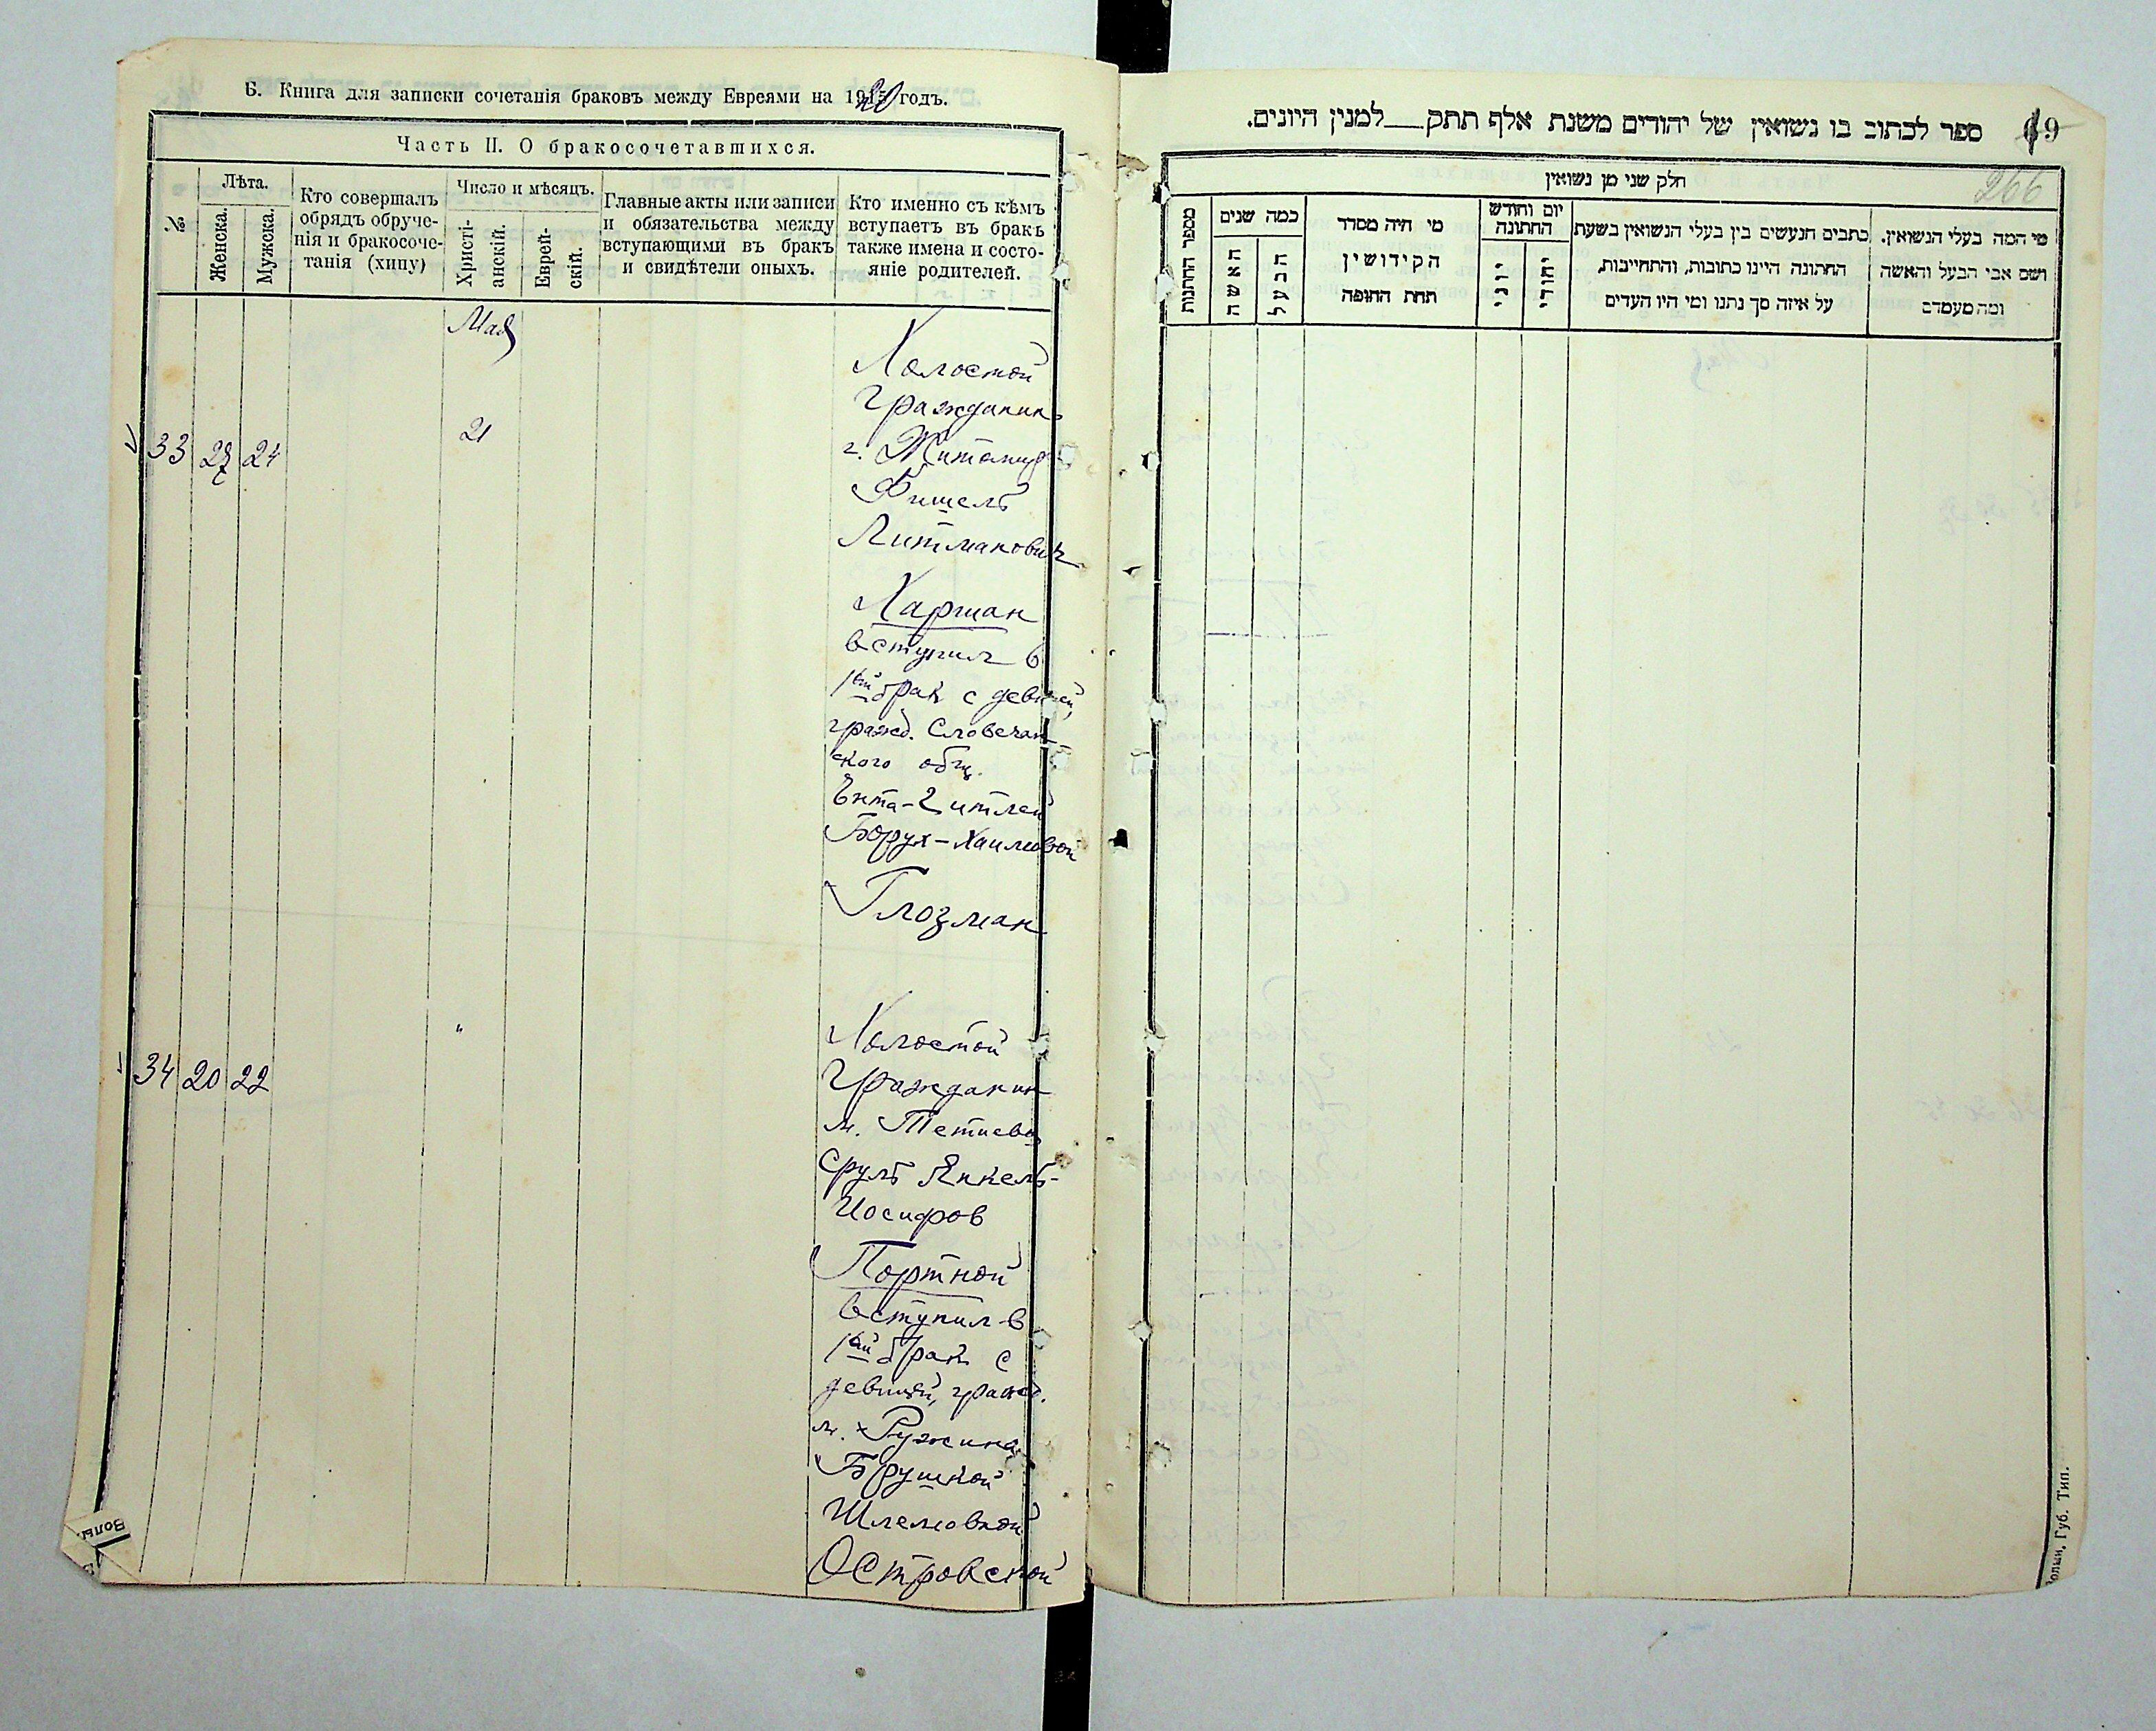 Б. Книга для записки сочетанія браковъ между Евреями на 1920 годъ.
Часть II. О бракосочетавшихся.
№
Лѣта.
Женска.
Мужска.
Кто совершалъ
обрядъ обруче-
нія и бракосоче-
танія (хипу)
Число и мѣсяцъ.
Христі-
анскій.
Еврей-
скій.
Главные акты или записи
и обязательства между
вступающими въ бракъ
и свидѣтели оныхъ.
Кто именно съ кѣмъ
вступаетъ въ бракъ
также имена и состо-
яніе родителей.
Мая
33 27 24
21
Холостой
Гражданин
г. Житомир
Фишель
Литманович
Харман
вступил в
1ый брак с девицей,
гражд. Словечан-
ского общ.
Ента-Гитлей
Борух-Хаимовой
Глозман
34 20 22
"
Холостой
Гражданин
м. Тетиева
Сруль Янкель-
Иосифов
Портной
вступил в
1ый брак с
девицей, гражд.
м. Ружина
Брушкой
Шлемовной
Островской
Волы
ספר לכתוב בו נשואין של יהודים משנת אלף תתק___למנין היונים.
69
266
חלק שני מן נשואין
מספר החתנות
כמה שנים
האשה
הבעל
מי היה מסדר
הקידושין
תחת החופה
יום וחודש
החתונה
יוני
יהודי
כתבים הנעשים בין בעלי הנשואין בשעת
החתונה היינו כתובות, והתחייבות,
על איזה סך נתנו ומי היו העדים
מי המה בעלי הנשואין.
ושם אבי הבעל והאשה
ומה מעמדם
Волын, Губ. Тип.